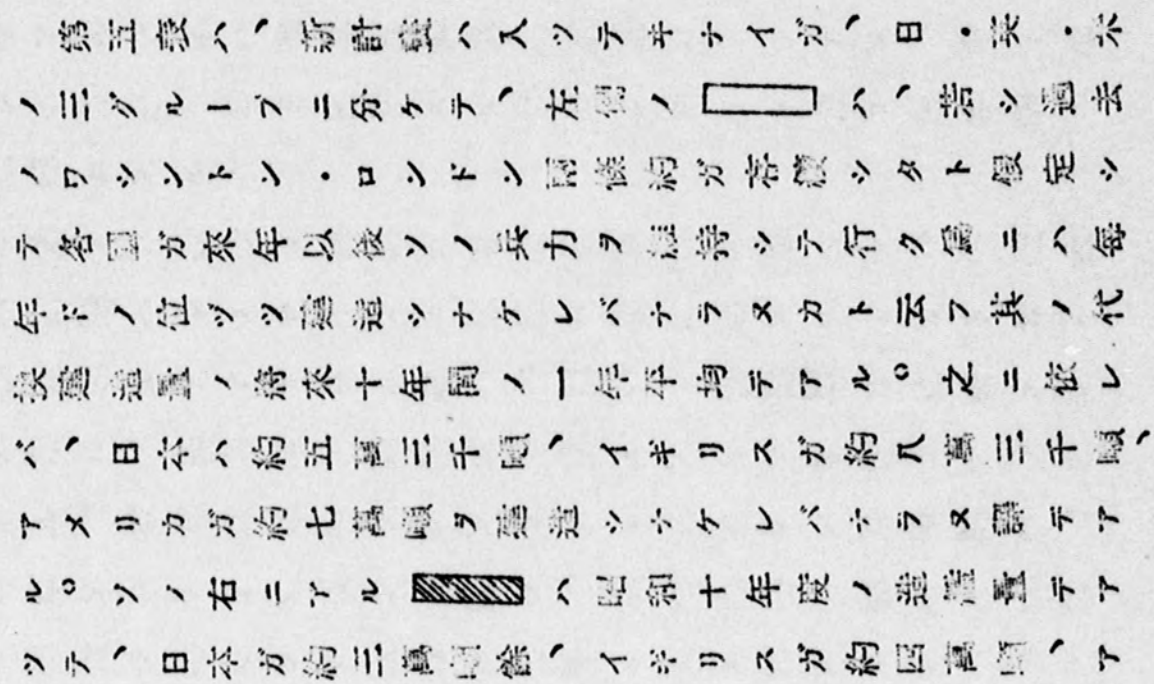 第五表ハ、新計畫ハ入ツテヰナイガ、日・英・米
ノ三グループニ分ケテ、左側ノ ハ、若シ過去
ノワシントン・ロンドン兩條約ガ存續シタト假定シ
テ各國ガ來年以後ソノ兵力ヲ維持シテ行ク爲ニハ毎
年ドノ位ヅツ建造シナケレバナラヌカト云フ其ノ代
換建造量ノ將來十年間ノ一年平均デアル。之ニ依レ
バ、日本ハ約五萬三千噸、イギリスガ約八萬三千噸、
アメリカガ約七萬噸ヲ建造シナケレバナラヌ譯デア
ル。ソノ右ニアル ハ昭和十年度ノ造艦量デア
ツテ、日本ガ約三萬噸餘、イギリスガ約四萬噸、ア